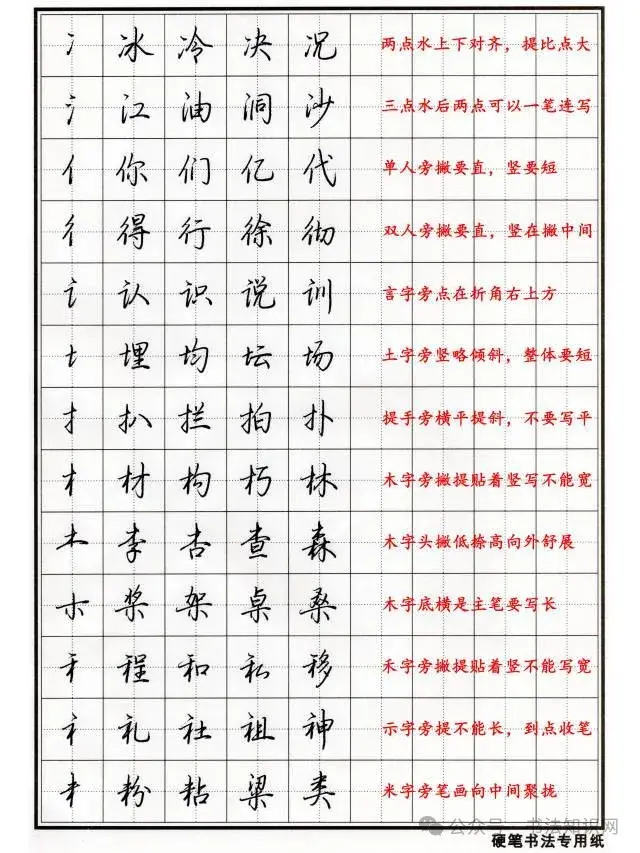 冫 冰 冷 决 况 两点水上下对齐，提比点大
氵 江 油 洞 沙 三点水后两点可以一笔连写
亻 你 们 亿 代 单人旁撇要直，竖要短
彳 得 行 徐 彻 双人旁撇要直，竖在撇中间
讠 认 识 说 训 言字旁点在折角右上方
土 埋 均 坛 场 土字旁竖略倾斜，整体要短
扌 扒 拦 拍 扑 提手旁横平提斜，不要写平
木 材 构 朽 林 木字旁撇提贴着竖写不能宽
木 李 杏 查 森 木字头撇低捺高向外舒展
木 桨 架 桌 桑 木字底横是主笔要写长
禾 程 和 私 移 禾字旁撇提贴着竖不能写宽
礻 礼 社 祖 神 示字旁提不能长，到点收笔
米 粉 粘 粱 类 米字旁笔画向中间聚拢
公众号 · 书法知识网
硬笔书法专用纸